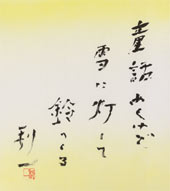 童話
雪に灯して
鈴つくる
利一